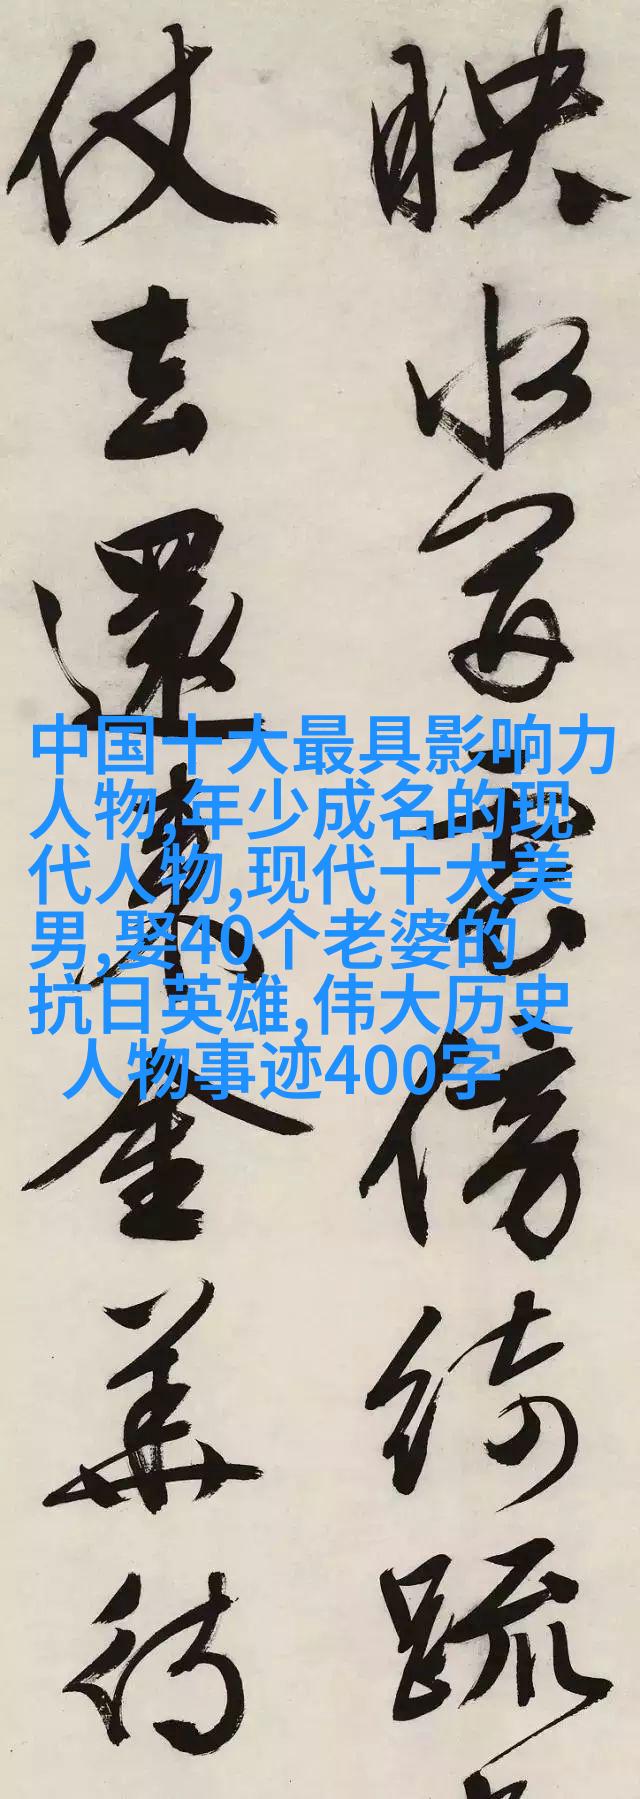 映水雲傍綺疏
仗去還來金華
中国十大最具影响力
人物,年少成名的现
代人物,现代十大美
男,娶40个老婆的
抗日英雄,伟大历史
人物事迹400字